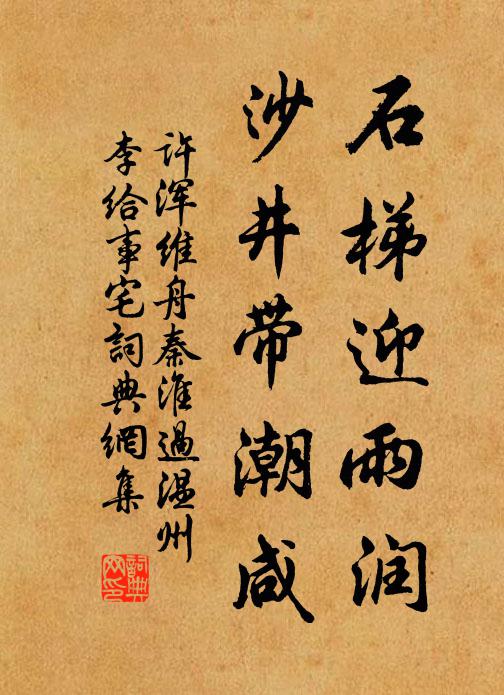 石梯迎雨润
沙井带潮咸
许浑维舟秦淮過温州
李给事宅詞典網集
詞典
网印